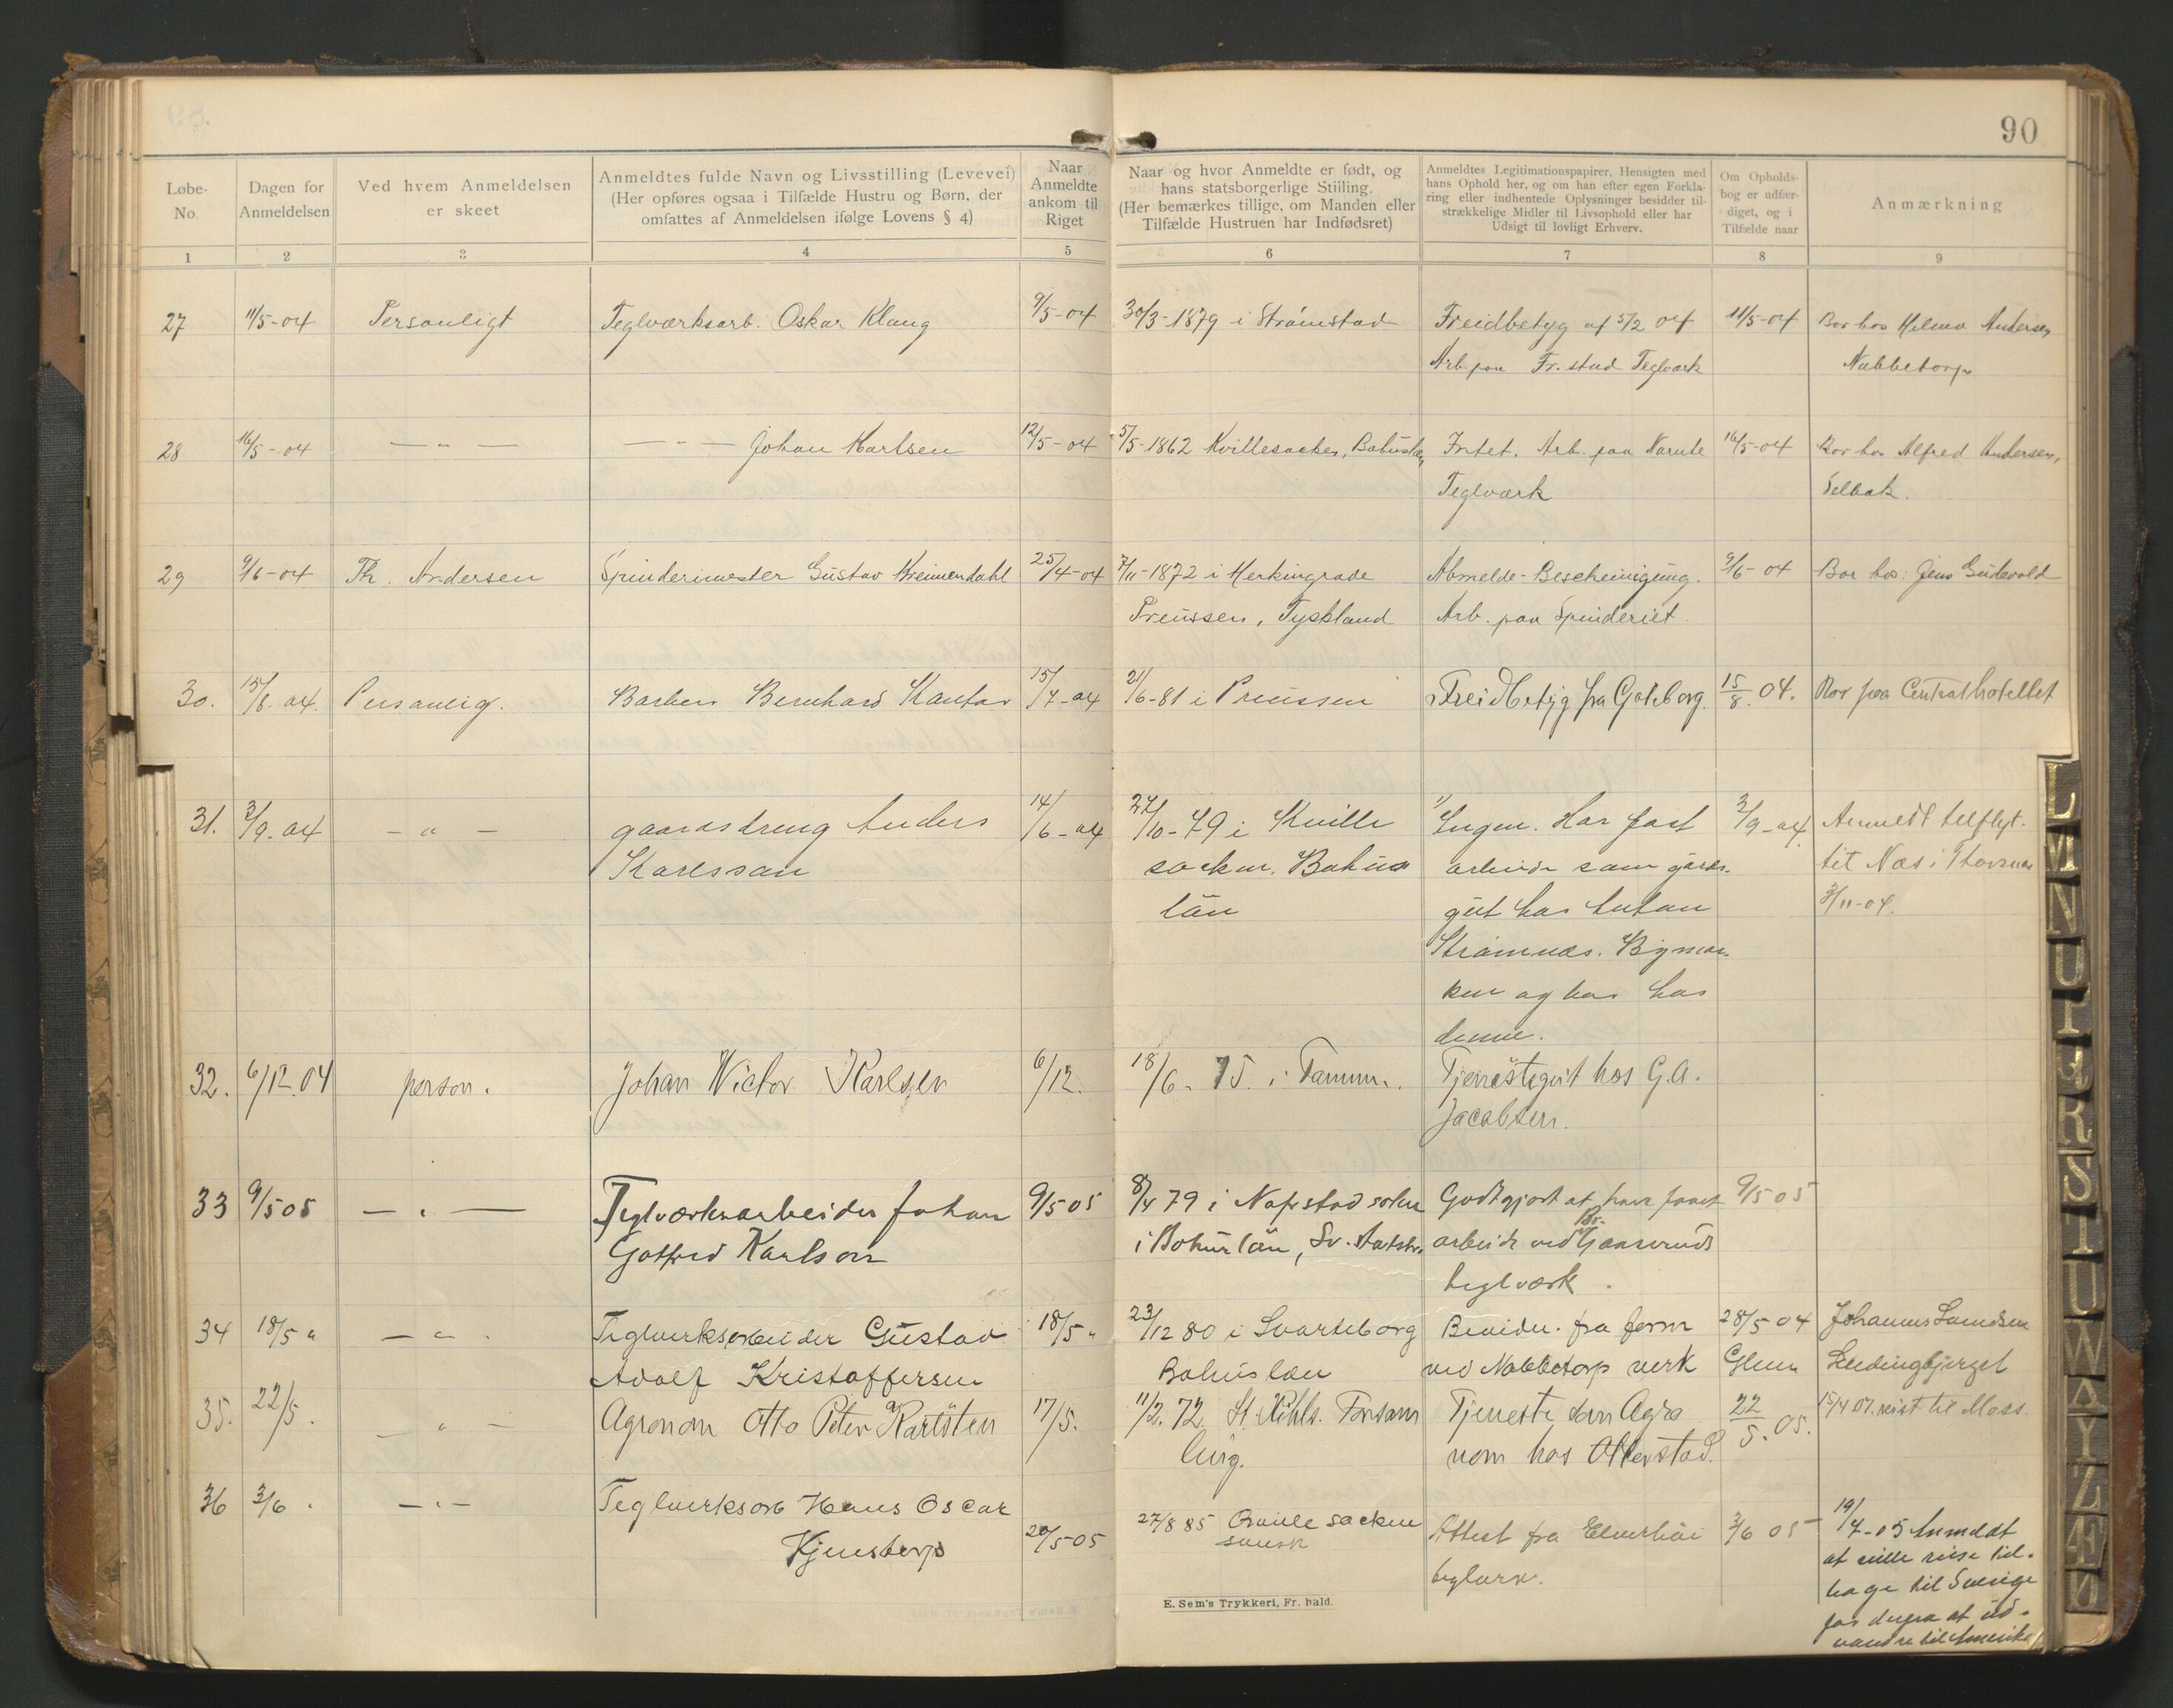 90
Løbe-No.
Dagen for Anmeldelsen
Ved hvem Anmeldelsen er skeet
Anmeldtes fulde Navn og Livsstilling (Levevei)
(Her opføres ogsaa i Tilfælde Hustru og Børn, der
omfattes af Anmeldelsen ifølge Lovens § 4)
Naar Anmeldte ankom til Riget
Naar og hvor Anmeldte er født, og
hans statsborgerlige Stilling.
(Her bemærkes tillige, om Manden eller
Tilfælde Hustruen har Indfødsret)
Anmeldtes Legitimationspapirer, Hensigten med
hans Ophold her, og om han efter egen Forkla-
ring eller indhentede Oplysninger besidder til-
strækkelige Midler til Livsophold eller har
Udsigt til lovligt Erhverv.
Om Opholds-
bog er udfær-
diget, og i
Tilfælde naar
Anmærkning
1 2 3 4 5 6 7 8 9
27 11/5-04 Personligt Teglværksarb. Oskar Klang 9/5-04 30/3-1879 i Strömstad Freidbetyg af 5/2 04 11/5-04 Bor hos Helmer Andersen
Arb. paa Fr.stad Teglværk Nabbetorp
28 16/5-04 — " — — " — Johan Karlsen 12/5-04 5/5-1862 Kvillesocken, Bohuslen, Intet. Arb. paa Narute 16/5-04 Bor hos Alfred Andersen,
Teglværk Selbak.
29 9/6-04 Th. Andersen Spinderimester Gustav Kreimendahl 25/4-04 7/11-1872 i Herkingrade Abmelde-Bescheinigung. 9/6-04 Bor hos: Jens Gudevold
Preussen, Tyskland Arb. paa Spinderiet
30. 15/8.04. Personlig. Barber Bernhard Kantor 15/7-04 21/6-81 i Preussen Freidbetyg fra Gøteborg. 15/8.04. Bor paa Centralhotellet
31. 3/9-04 — " — gaardsdreng Anders 14/6-04 27/10-79 i Kville Ingen. Har fast 3/9-04. Anmeldt
Karlsson socken, Bohus arbeide som gaards- til Næs i
län gut hos Anton 3/11-04.
Strømnæs. Bymar-
ken og bor hos
denne.
32. 6/12.04 person. Johan Victor Karlsen 6/12. 18/6-75. i Tanum. Tjenestegut hos G.A.
Jacobsen.
33 9/5 05 — " — Teglværksarbeider Johan 9/5 05 8/4 79 i sokn Godtgjort at have faaet 9/5 05
Gotfred Karlson i Bohus län, Sv. arbeide ved
teglværk.
34 18/5 " — " — Teglverksarbeider Gustav 18/5 " 23/12 80 i Svarteborg fra form 28/5 04 Johannes
Adolf Kristoffersen Bohuslän ved Nabbetorp verk
35. 22/5. — " — Agronom Otto Peter Karlsten 17/5. 11/2.72. St. Forsam Tjeneste som Agro 22/5.05. 15/4 07. reist til Moss.
ling. nom hos Otterstad.
36 3/6. — " — Teglverksarb Hans Oscar 27/8 85 Qville socken Attest fra Elverhöi 3/6 05 19/7-05 Anmeldt
Kjensterp 20/5-05 svensk teglverk. at ville reise til-
bage til Sverige
for derfra at ud-
vandre til Amerika
E. Sem's Trykkeri, Fr. hald.
L M N O P Q R S T U W X Y Z Æ Ø